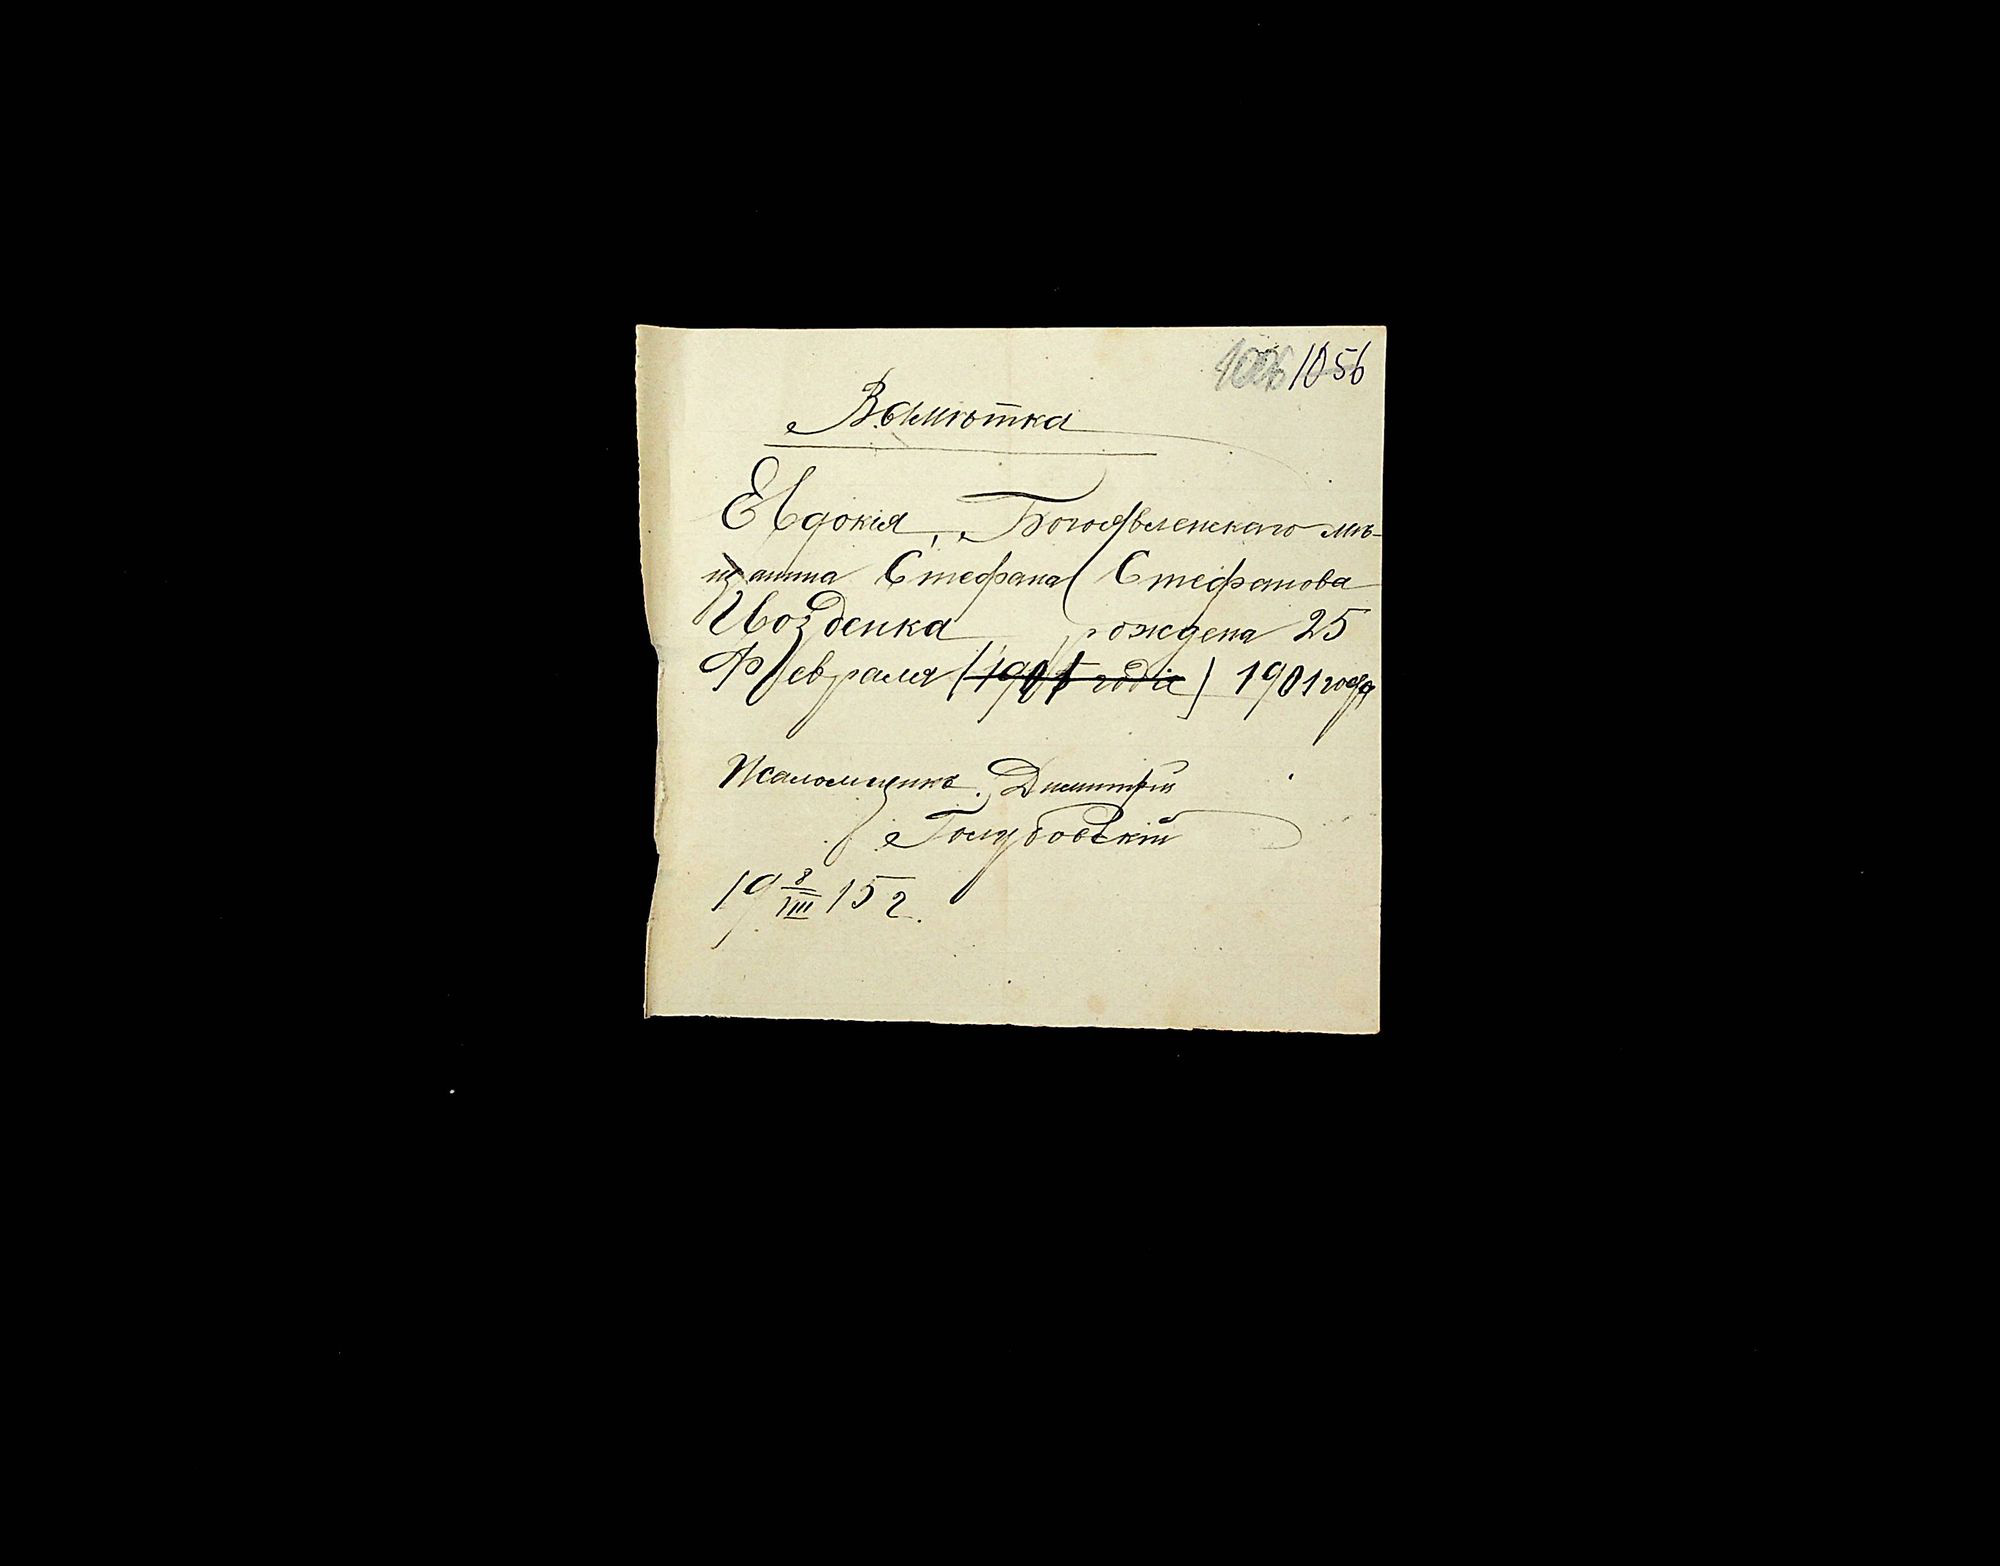 1056
Замѣтка
Евдокія, Богоявленскаго мѣ-
щанина Стефана Стефанова
Гвозденка рождена 25
Февраля (1901 годіе) 1901 года
Псаломщикъ Димитрій
Голубовскій
19 8/III 15 г.